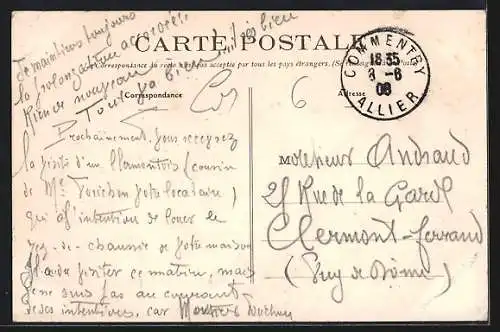 Je maintiens toujours
la prolongation accordée
Rien de nouveau
Tout va bien
CARTE POSTALE
La Correspondance au recto n'est pas acceptée par tous les pays étrangers. (Se
Correspondance
Adresse
6
COMMENTRY
18 35
8 - 6
08
ALLIER
Prochainement, vous recevrez
la visite d'un Clamontois (cousin
de Mr votre locataire)
qui a l'intention de louer le
rez-de-chaussée de votre maison
Il a dû visiter ce matin, mais
je ne suis pas au courant
de ses intentions, car
Monsieur Andraud
25 Rue de la Gare
Clermont-Ferrand
(Puy de Dôme)